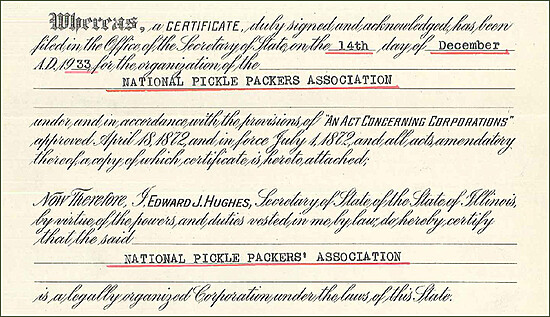 Whereas, a CERTIFICATE, duly signed and acknowledged, has been
filed in the Office of the Secretary of State, on the 14th day of December
A.D. 1933, for the organization of the
NATIONAL PICKLE PACKERS ASSOCIATION
under and in accordance with the provisions of "AN ACT CONCERNING CORPORATIONS"
approved April 18, 1872, and in force July 1, 1872, and all acts amendatory
thereof, a copy of which certificate is hereto attached;
Now Therefore, I, EDWARD J. HUGHES, Secretary of State of the State of Illinois,
by virtue of the powers and duties vested in me by law, do hereby certify
that the said
NATIONAL PICKLE PACKERS' ASSOCIATION
is a legally organized Corporation under the laws of this State.